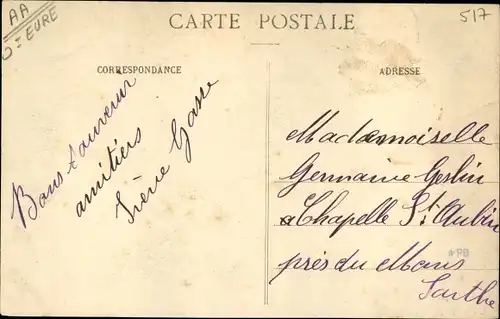 AA
EURE
CARTE POSTALE
517
CORRESPONDANCE
ADRESSE
Bons souvenir
amitiés
Mademoiselle
Germaine Geslin
a Chapelle St. Aubin
près du Mans
Sarthe
*PB